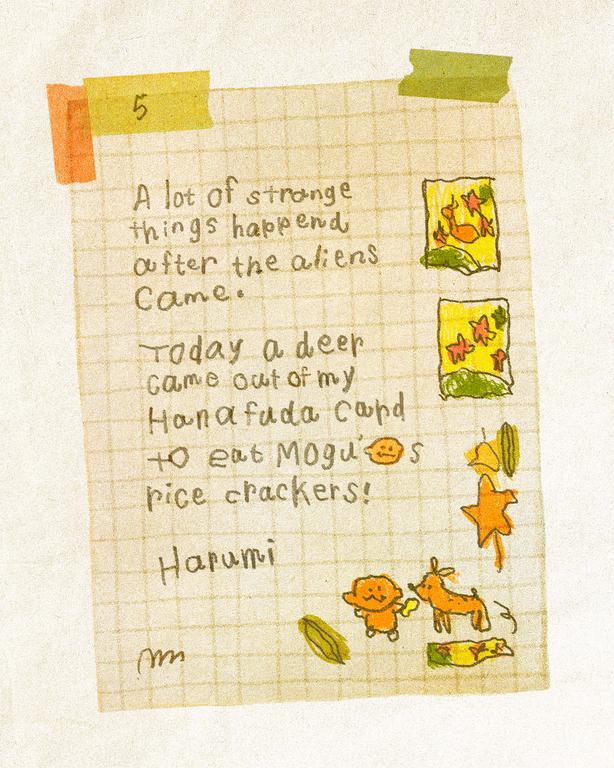 5
A lot of strange
things happend
after the aliens
came.
Today a deer
came out of my
Hanafuda card
to eat Mogu's
rice crackers!
Harumi